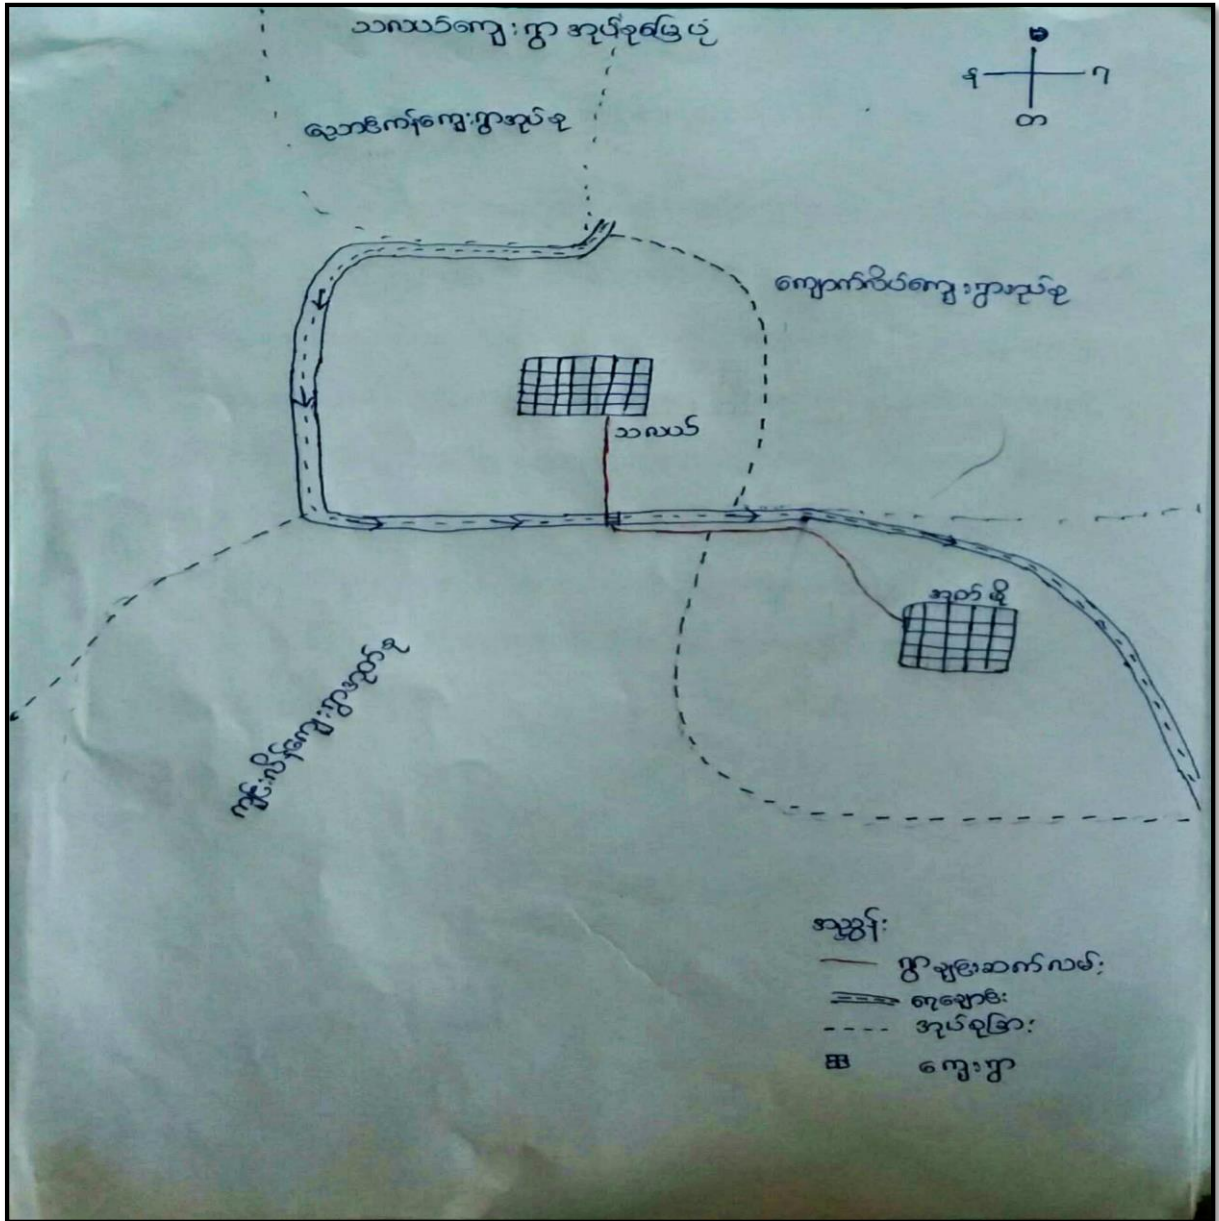 သလယ်ကျေးရွာ အုပ်စုမြေပုံ
မ
န
ဂ
တ
ညောင်ကန်ကျေးရွာအုပ်စု
ကျောက်လိပ်ကျေးရွာအုပ်စု
သလယ်
အုတ်ဖို
ကျွင်းလိန်ကျေးရွာအုတ်စု
အညွှန်း
ရွာချင်းဆက်လမ်း
ရေချောင်း
အုပ်စုခြား
ကျေးရွာ